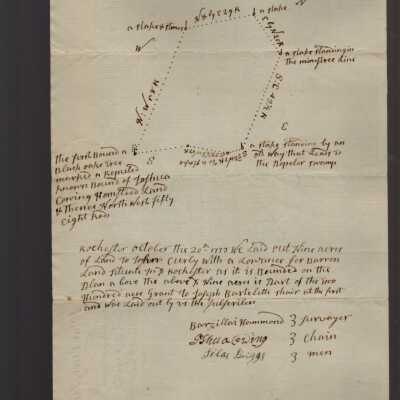 a stake & stones
a stake
a stake standing in
the minestree line
N
S
E
a stake standing by an
old way that Leads to
the Popolar swamp
The first Bound a
Black oake tree
marked a Reputed
known Bound of Joshua
Cowing Homsteed Land
& Thence North West fifty
eight Rods
Rochester october the 20th we Laid out Nine acres
of Land to John Clerly with a Lowance for Barron
Land situate in Rochester as it is Bounded on the
Plan a bove the above Nine acres is Part of the two
Hundred acre Grant to Joseph Bartlett's shair at the first
and was Laid out by us the subscribers
Barzillai Hammond } survayer
Joshua Cowing } chain
Silas Briggs } men